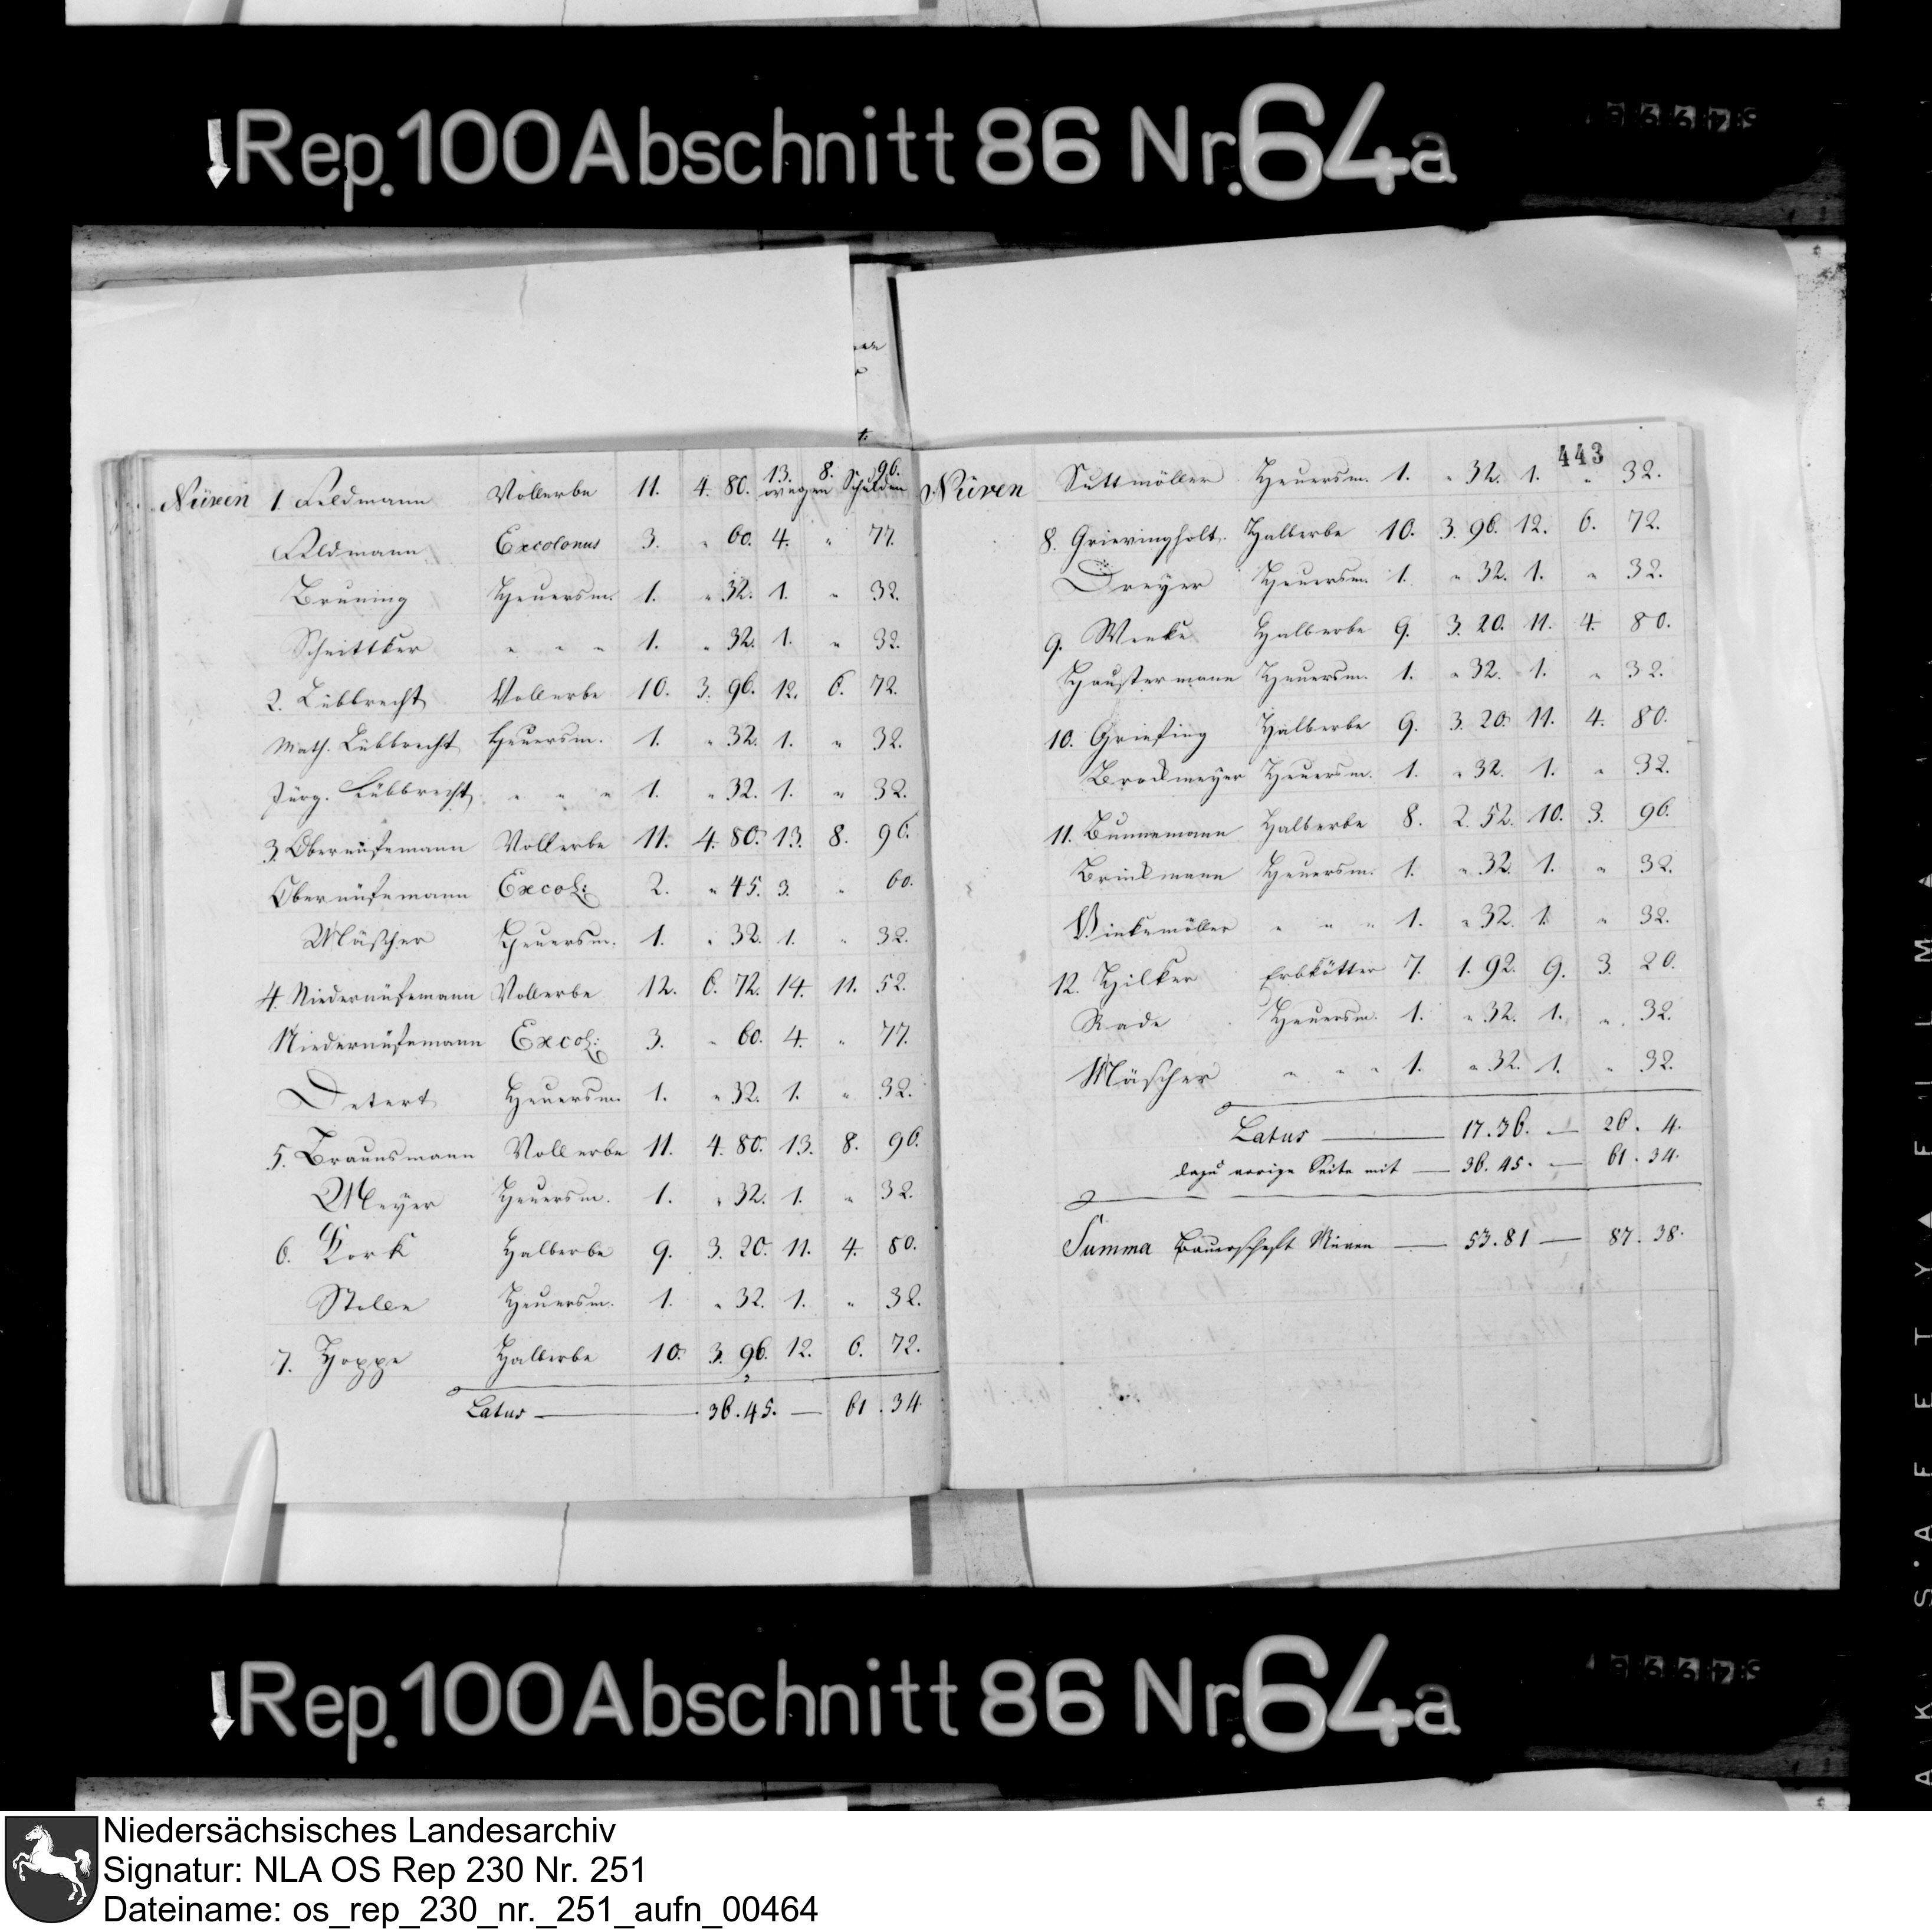 Rep. 100 Abschnitt 86 Nr. 64a
Nüven 1. Feldmann Vollerbe 11. 4. 80. 13. 8. 96.
wegen Schulden
Feldmann Excolonus 3. " 60. 4. " 77.
Bruning Heuersm. 1. " 32. 1. " 32.
Schnittker " " " 1. " 32. 1. " 32.
2. Lübbrecht Vollerbe 10. 3. 96. 12. 6. 72.
Math. Lübbrecht Heuersm. 1. " 32. 1. " 32.
Jürg. Lübbrecht " " " 1. " 32. 1. " 32.
3. Obernüfemann Vollerbe 11. 4. 80. 13. 8. 96.
Obernüfemann Excol: 2. " 45. 3. " 60.
Mäscher Heuersm. 1. " 32. 1. " 32.
4. Niedernüfemann Vollerbe 12. 6. 72. 14. 11. 52.
Niedernüfemann Excol: 3. " 60. 4. " 77.
Detert Heuersm. 1. " 32. 1. " 32.
5. Braunsmann Vollerbe 11. 4. 80. 13. 8. 96.
Meyer Heuersm. 1. " 32. 1. " 32.
6. Kork Halberbe 9. 3. 20. 11. 4. 80.
Stolle Heuersm. 1. " 32. 1. " 32.
7. Hoppe Halberbe 10. 3. 96. 12. 6. 72.
Latus — 36. 45. — 61. 34.
443
Nüven Suttmöller Heuersm. 1. " 32. 1. " 32.
8. Grievingholt Halberbe 10. 3. 96. 12. 6. 72.
Dreyer Heuersm. 1. " 32. 1. " 32.
9. Wenke Halberbe 9. 3. 20. 11. 4. 80.
Haustermann Heuersm. 1. " 32. 1. " 32.
10. Griefing Halberbe 9. 3. 20. 11. 4. 80.
Brockmeyer Heuersm. 1. " 32. 1. " 32.
11. Bunnemann Halberbe 8. 2. 52. 10. 3. 96.
Brinkmann Heuersm. 1. " 32. 1. " 32.
Winkemöller " " " 1. " 32. 1. " 32.
12. Hilker Erbkötter 7. 1. 92. 9. 3. 20.
Rade Heuersm. 1. " 32. 1. " 32.
Mäscher " " " 1. " 32. 1. " 32.
Latus — 17. 36. — 26. 4.
dazu vorige Seite mit — 36. 45. — 61. 34.
Summa Bauerschaft Nüven — 53. 81 — 87. 38.
Rep. 100 Abschnitt 86 Nr. 64a
Niedersächsisches Landesarchiv
Signatur: NLA OS Rep 230 Nr. 251
Dateiname: os_rep_230_nr._251_aufn_00464